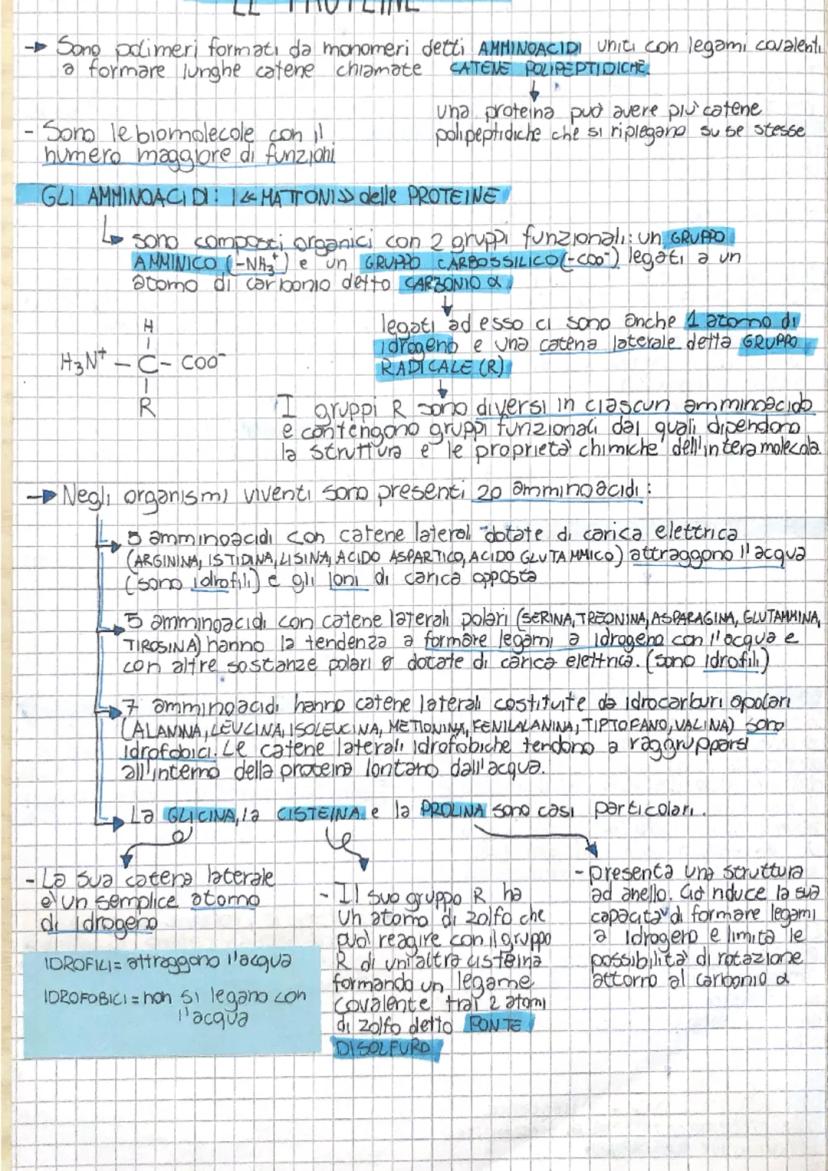 LE PROTEINE
→ Sono polimeri formati da monomeri detti AMMINOACIDI uniti con legami covalenti
a formare lunghe catene chiamate CATENE POLIPEPTIDICHE
una proteina può avere più catene
polipeptidiche che si ripiegano su se stesse
- Sono le biomolecole con il
numero maggiore di funzioni
GLI AMMINOACIDI: I «MATTONI» delle PROTEINE
sono composti organici con 2 gruppi funzionali: un GRUPPO
AMMINICO (-NH₃⁺) e un GRUPPO CARBOSSILICO (-COO⁻) legati a un
atomo di carbonio detto CARBONIO α
legati ad esso ci sono anche 1 atomo di
idrogeno e una catena laterale detta GRUPPO
RADICALE (R)
H
H₃N⁺ - C - COO⁻
R
I gruppi R sono diversi in ciascun amminoacido
e contengono gruppi funzionali dai quali dipendono
la struttura e le proprietà chimiche dell'intera molecola.
→ Negli organismi viventi sono presenti 20 amminoacidi:
5 amminoacidi con catene laterali dotate di carica elettrica
(ARGININA, ISTIDINA, LISINA, ACIDO ASPARTICO, ACIDO GLUTAMMICO) attraggono l'acqua
(sono idrofili) e gli ioni di carica opposta
5 amminoacidi con catene laterali polari (SERINA, TREONINA, ASPARAGINA, GLUTAMMINA,
TIROSINA) hanno la tendenza a formare legami a idrogeno con l'acqua e
con altre sostanze polari o dotate di carica elettrica. (sono idrofili)
7 amminoacidi hanno catene laterali costituite da idrocarburi apolari
(ALANINA, LEUCINA, ISOLEUCINA, METIONINA, FENILALANINA, TIPTOFANO, VALINA) sono
idrofobici. Le catene laterali idrofobiche tendono a raggrupparsi
all'interno della proteina lontano dall'acqua.
La GLICINA, la CISTEINA e la PROLINA sono casi particolari.
- La sua catena laterale
è un semplice atomo
di idrogeno
- Il suo gruppo R ha
un atomo di zolfo che
può reagire con il gruppo
R di un'altra cisteina
formando un legame
covalente tra i 2 atomi
di zolfo detto PONTE
DISOLFURO
- presenta una struttura
ad anello. Ciò riduce la sua
capacità di formare legami
a idrogeno e limita le
possibilità di rotazione
attorno al carbonio α
IDROFILI = attraggono l'acqua
IDROFOBICI = non si legano con
l'acqua